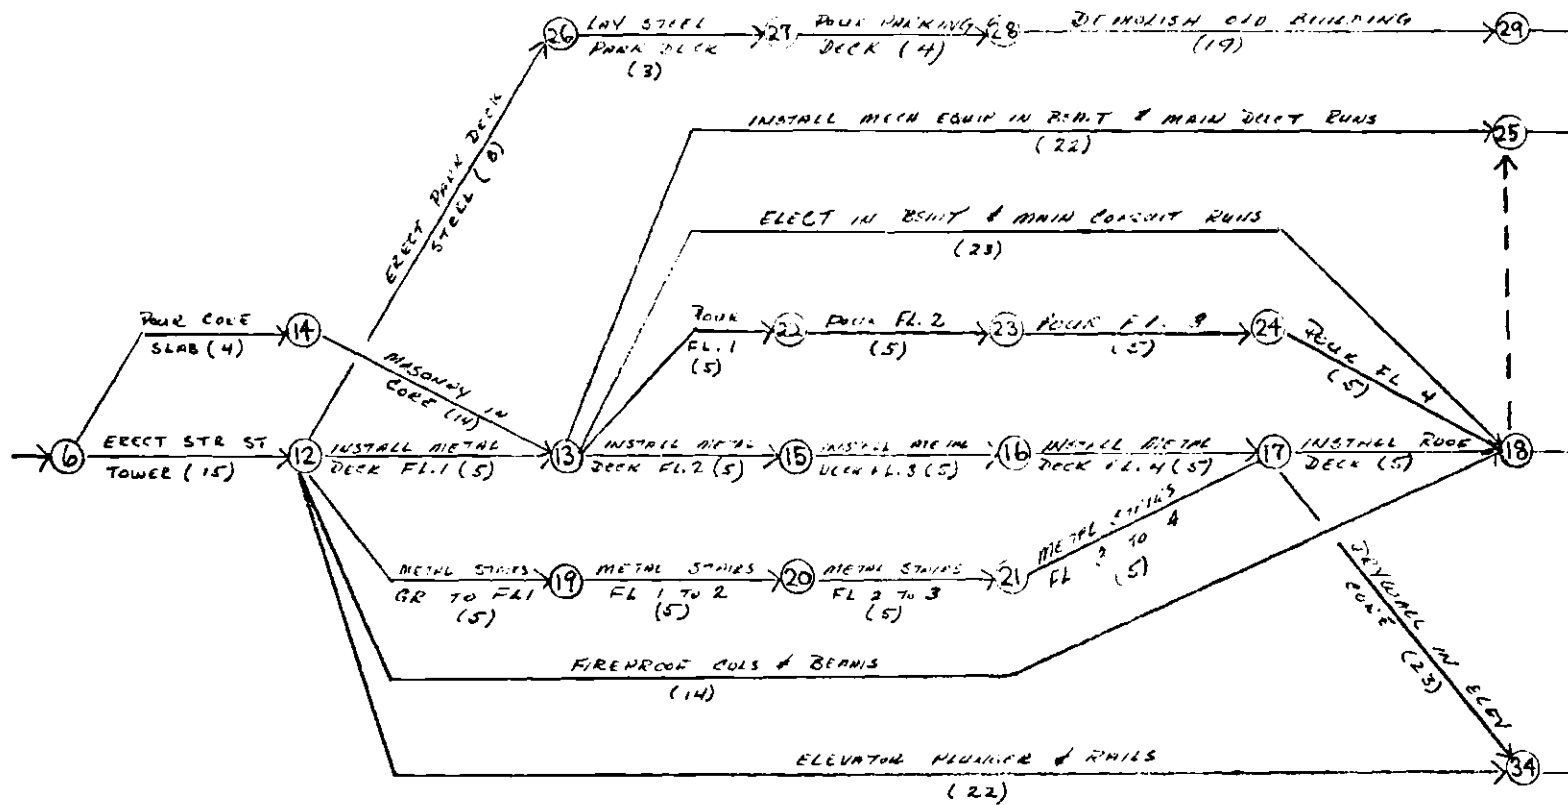 26
LAY STEEL
PARK DECK
(3)
27
POUR PARKING
DECK (4)
28
DEMOLISH OLD BUILDING
(19)
29
ERECT PARK DECK
STEEL (8)
INSTALL MECH EQUIP IN BSMT & MAIN DUCT RUNS
(22)
25
ELECT IN BSMT & MAIN CONDUIT RUNS
(23)
POUR CORE
SLAB (4)
14
MASONRY IN
CORE (14)
POUR
FL. 1
(5)
22
POUR FL. 2
(5)
23
POUR FL. 3
(5)
24
POUR FL 4
(5)
6
ERECT STR ST
TOWER (15)
12
INSTALL METAL
DECK FL.1 (5)
13
INSTALL METAL
DECK FL.2 (5)
15
INSTALL METAL
DECK FL.3 (5)
16
INSTALL METAL
DECK FL.4 (5)
17
INSTALL ROOF
DECK (5)
18
METAL STAIRS
GR TO FL1
(5)
19
METAL STAIRS
FL 1 TO 2
(5)
20
METAL STAIRS
FL 2 TO 3
(5)
21
METAL STAIRS
FL 3 TO 4
(5)
DRYWALL IN ELEV
CORE
(23)
FIREPROOF COLS & BEAMS
(14)
ELEVATOR PLUNGER & RAILS
(22)
34